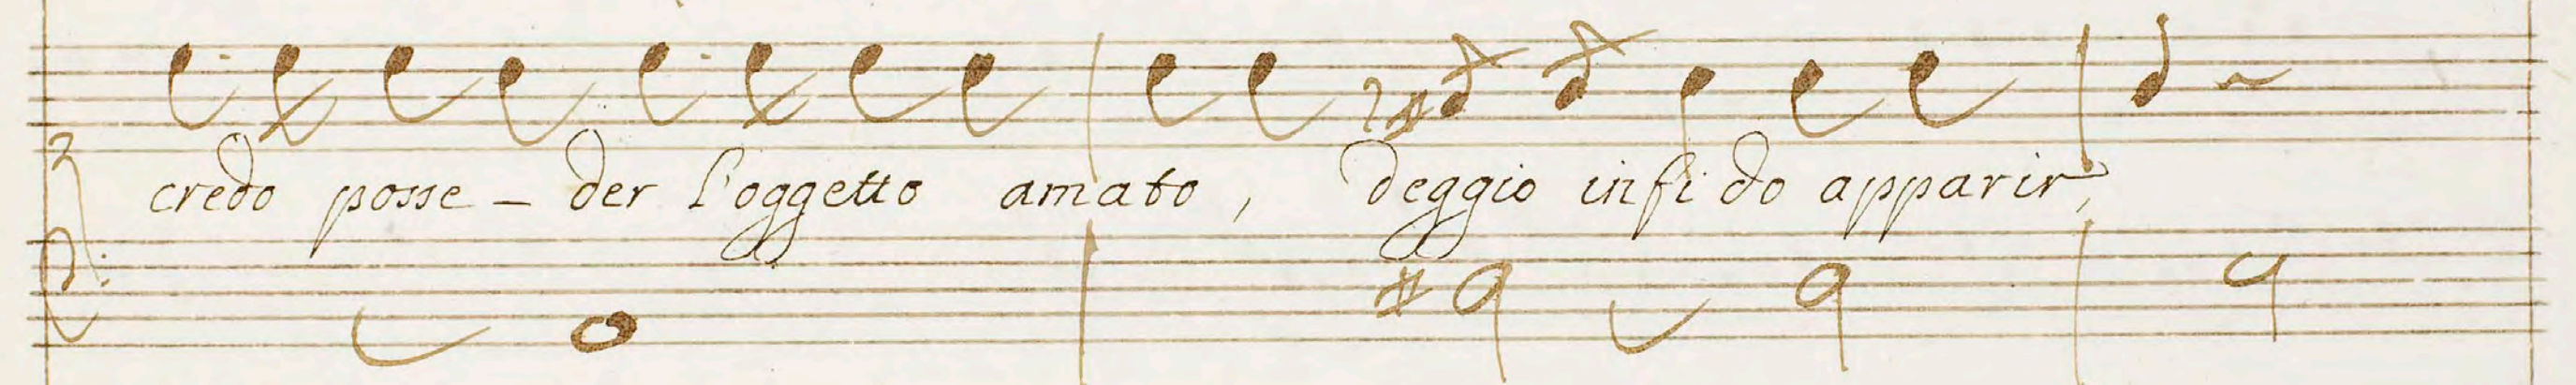 credo posse - der l'oggetto amato, deggio infido apparir,